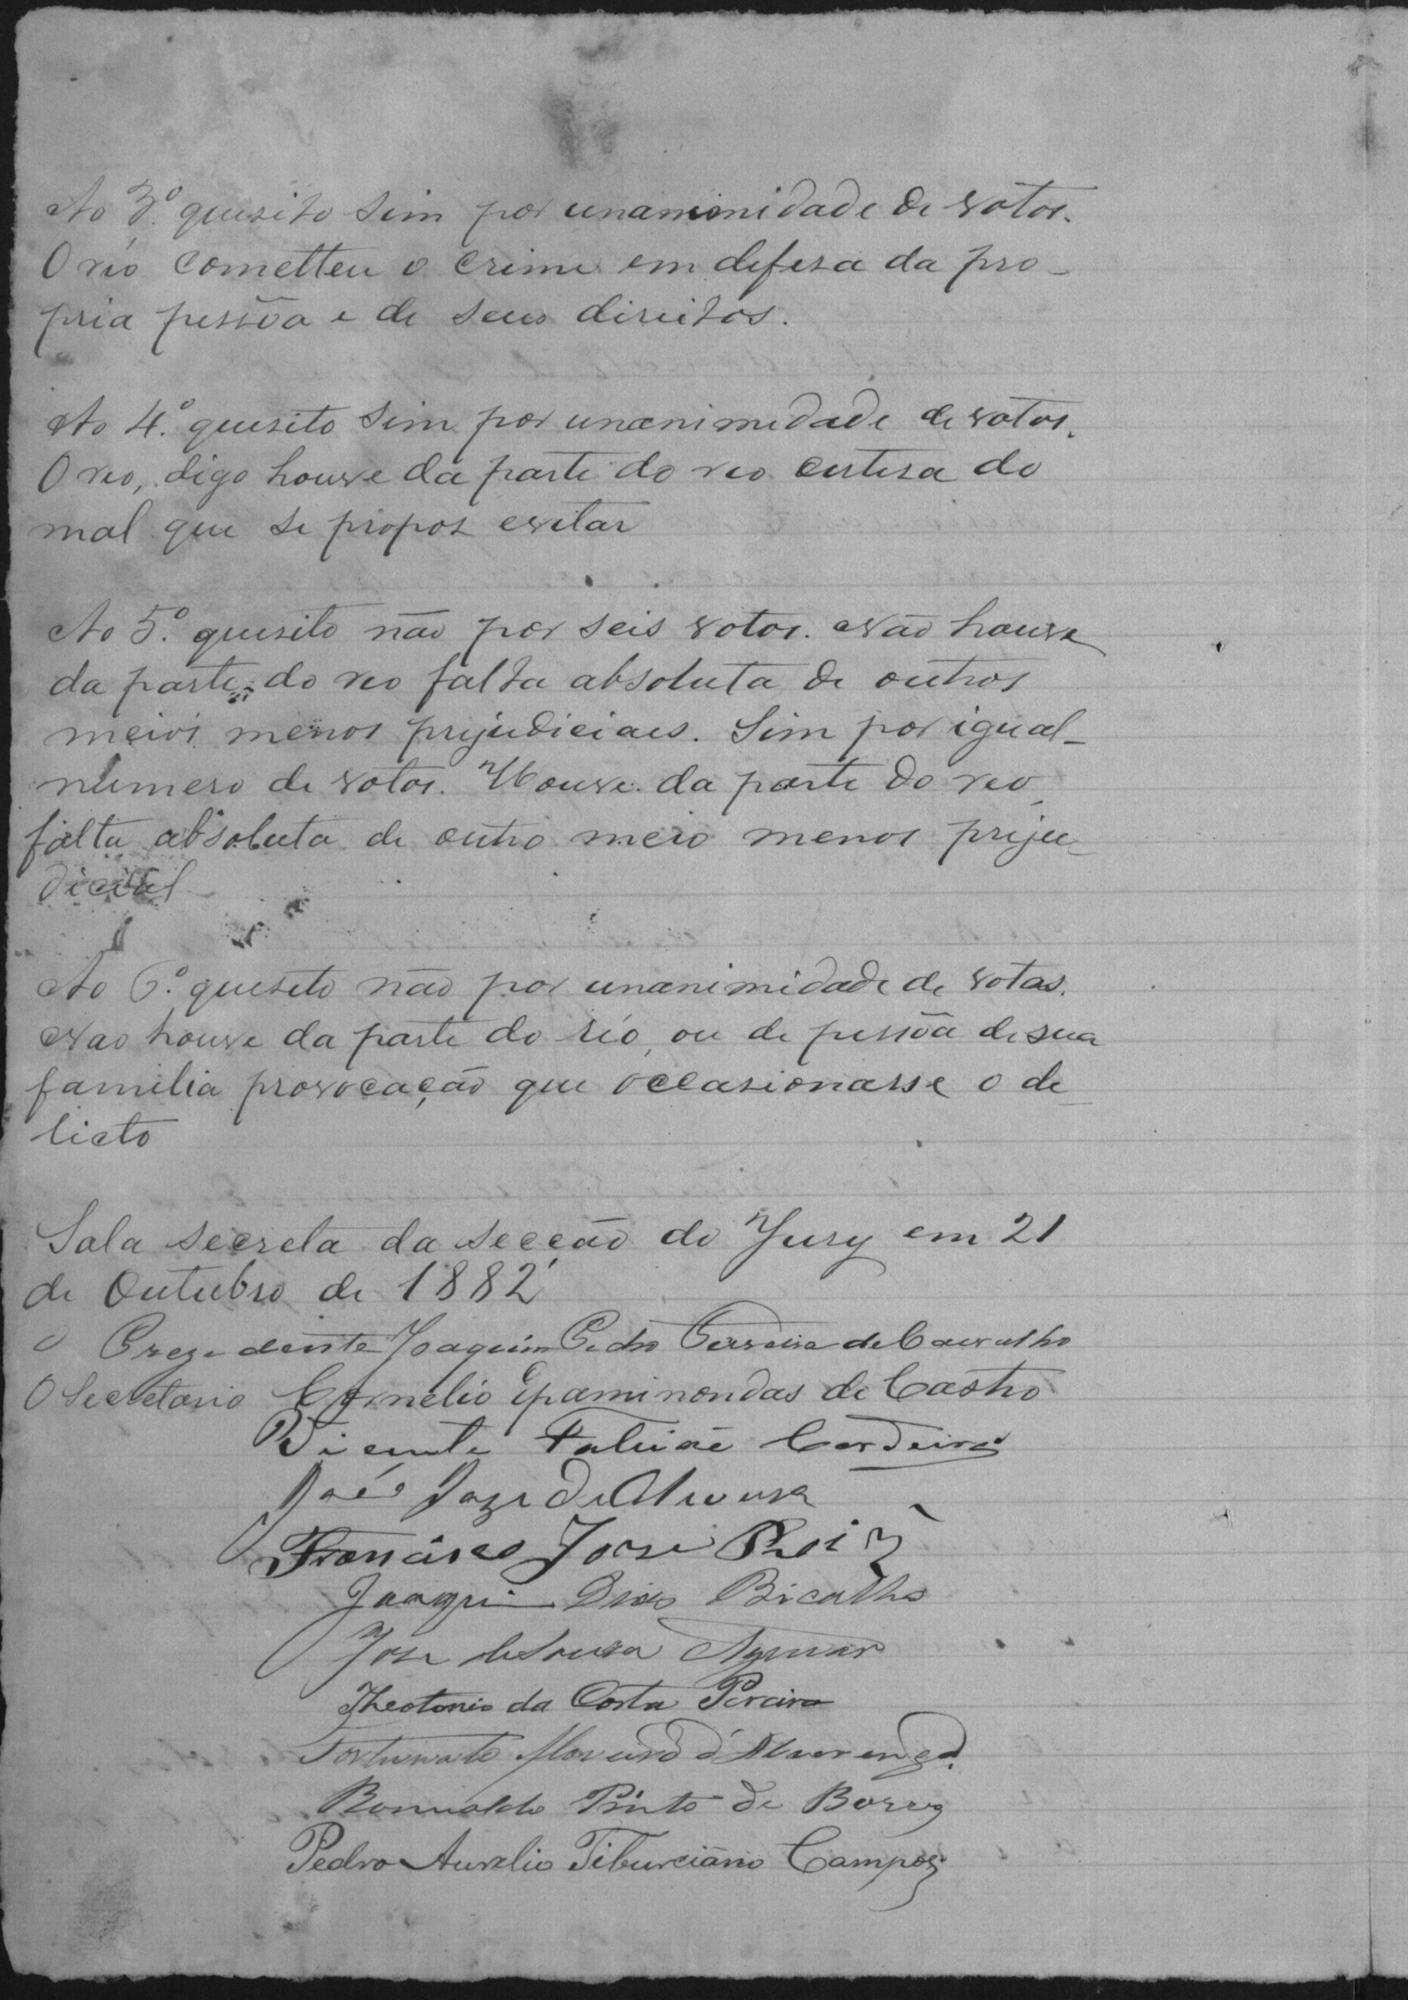 Ao 3º. quesito sim por unamonidade de votos.
O réo cometteu o crime em defesa da pro-
pria pessôa e de seus direitos.
Ao 4º. quesito sim por unanimidade de votos.
O reo, digo houve da parte do reo certesa do
mal que se propos evitar
Ao 5º. quesito não por seis votos. Não houve
da parte do reo falta absoluta de outros
meios menos prejudiciaes. Sim por igual-
numero de votos. Houve da parte do reo
falta absoluta de outro meio menos preju-
dicial
Ao 6º. quesito não por unanimidade de votos.
Nao houve da parte do réo, ou de pessôa de sua
familia provocação que occasionasse o de-
licto
Sala secreta da secção do Jury em 21
de Outubro de 1882
O Prezedente Joaquim Pedro Ferreira de Carvalho
O Secretario Cornelio Epaminondas de Castro
Vicente Cordeiro
José de
Francisco Jose
Joaquim Dias Bicalho
Jose de Souza Aguiar
Theotonio da Costa Pereira
Fortunato d'Alvarenga.
Romualdo Pinto de
Pedro Aurelio Tiburciano Campos